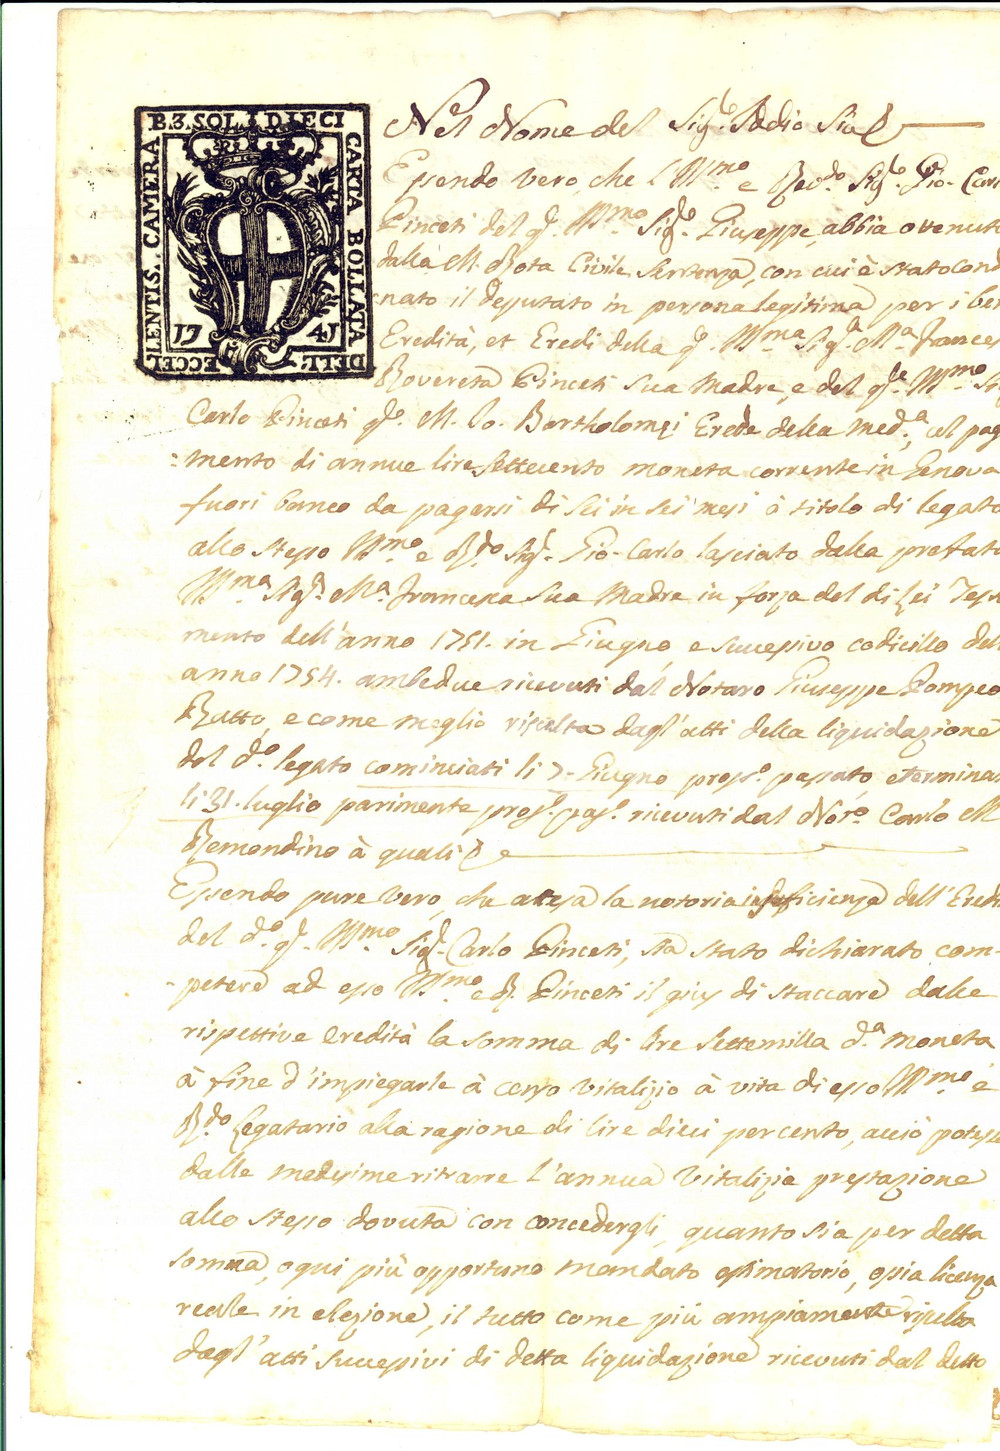 B. 3. SOL. DIECI
CARTA BOLLATA
DELL'
ECCEL
LENTIS. CAMERA
1741
Nel Nome del Sig.re Iddio Sia
Essendo vero, che l'Ill.mo e Rev.do Sig.re Gio. Carl
Pinceti del q. Ill.mo Sig.re Giuseppe, abbia ottenut
dalla M. Rota Civile Sentenza, con cui è stato cond
nato il deputato in persona legitima per i ben
Eredità, et Eredi della q. Ill.ma Sig.ra M.a Frances
Rovereta Pinceti sua Madre, e del q. Ill.mo Sig
Carlo Pinceti q. M. Bartholomei Erede della med.a, al pag
mento di annue lire settecento moneta corrente in Genova
fuori banco da pagarsi di sei in sei mesi à titolo di legato
allo stesso Ill.mo e R.do Sig.r Gio. Carlo lasciato dalla prefata
Ill.ma Sig.ra M.a Francesca sua Madre in forza del di lei Testa
mento dell'anno 1751. in Giugno, e successivo codicillo dell
anno 1754. ambedue ricevuti dal Notaro Giuseppe Pompeo
e come meglio risulta dagl'atti della liquidazione
del d.o legato cominciati li 7. Giugno pross.o passato e terminat
li 31. luglio parimente pros.o pas.o ricevuti dal Not.ro Carlo M
Remondino à quali
Essendo pure vero, che attesa la notoria insufficienza dell'Eredi
del d.o q. Ill.mo Sig.r Carlo Pinceti, sia stato dichiarato com-
petere ad esso Ill.mo e R. Pinceti il gius di staccare dalle
rispettive Eredità la somma di lire settemilla d.a moneta
à fine d'impiegarle à censo vitalizio à vita di esso Ill.mo e
R.do Legatario alla ragione di lire dieci per cento, acciò potesse
dalle medesime ritrarre l'annua vitalizia prestazione
allo stesso dovuta con concedergli, quanto sia per detta
somma, ogni più opportuno mandato estimatorio, ossia licenza
reale in elezione, il tutto come più ampiamente risulta
dagl'atti successivi di detta liquidazione ricevuti dal detto